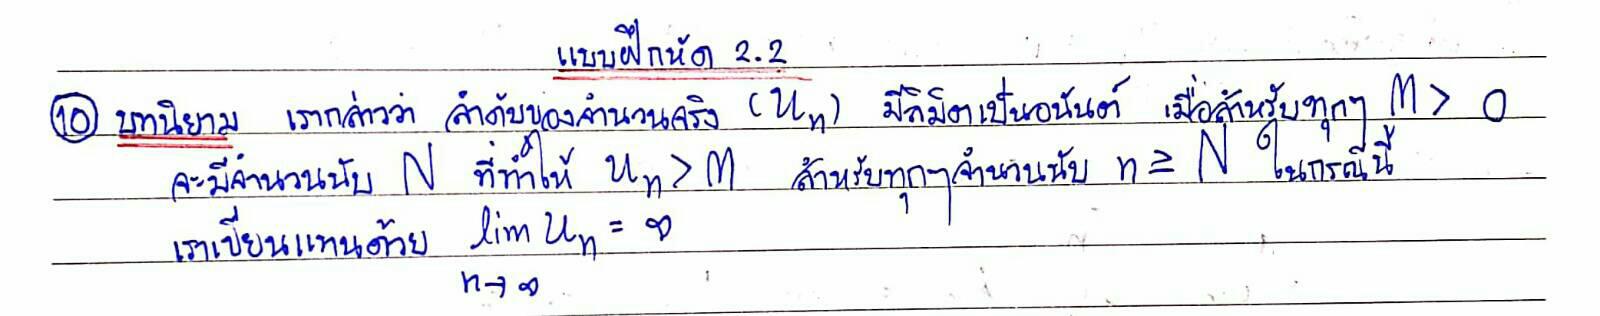 แบบฝึกหัด 2.2
⑩ บทนิยาม เรากล่าวว่า ลำดับของจำนวนจริง (Un) มีลิมิตเป็นอนันต์ เมื่อสำหรับทุกๆ M > 0
จะมีจำนวนนับ N ที่ทำให้ Un > M สำหรับทุกๆจำนวนนับ n ≥ N ในกรณีนี้
เราเขียนแทนด้วย lim Un = ∞
n→∞